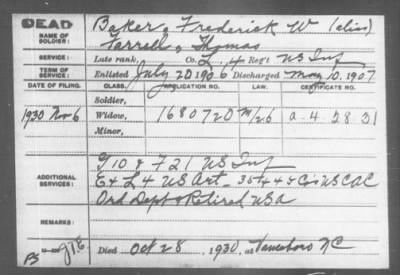 DEAD
NAME OF SOLDIER:
Baker, Frederick W (alias)
Farrell, Thomas
SERVICE:
Late rank, Co. L, 4 Reg't US Inf
TERM OF SERVICE:
Enlisted July 20 1906 Discharged May 10, 1907
DATE OF FILING. CLASS. APPLICATION NO. LAW. CERTIFICATE NO.
Soldier,
1930 Nov 6 Widow, 1680720 m/26 a-4-28-31
Minor,
ADDITIONAL SERVICES:
G 10 & F 21 US Inf
E & L 4 US Art - 35 & 44 Co's US CAC
Ord Dept & Retired USA
REMARKS:
Died Oct 28, 1930, at Vanceboro NC